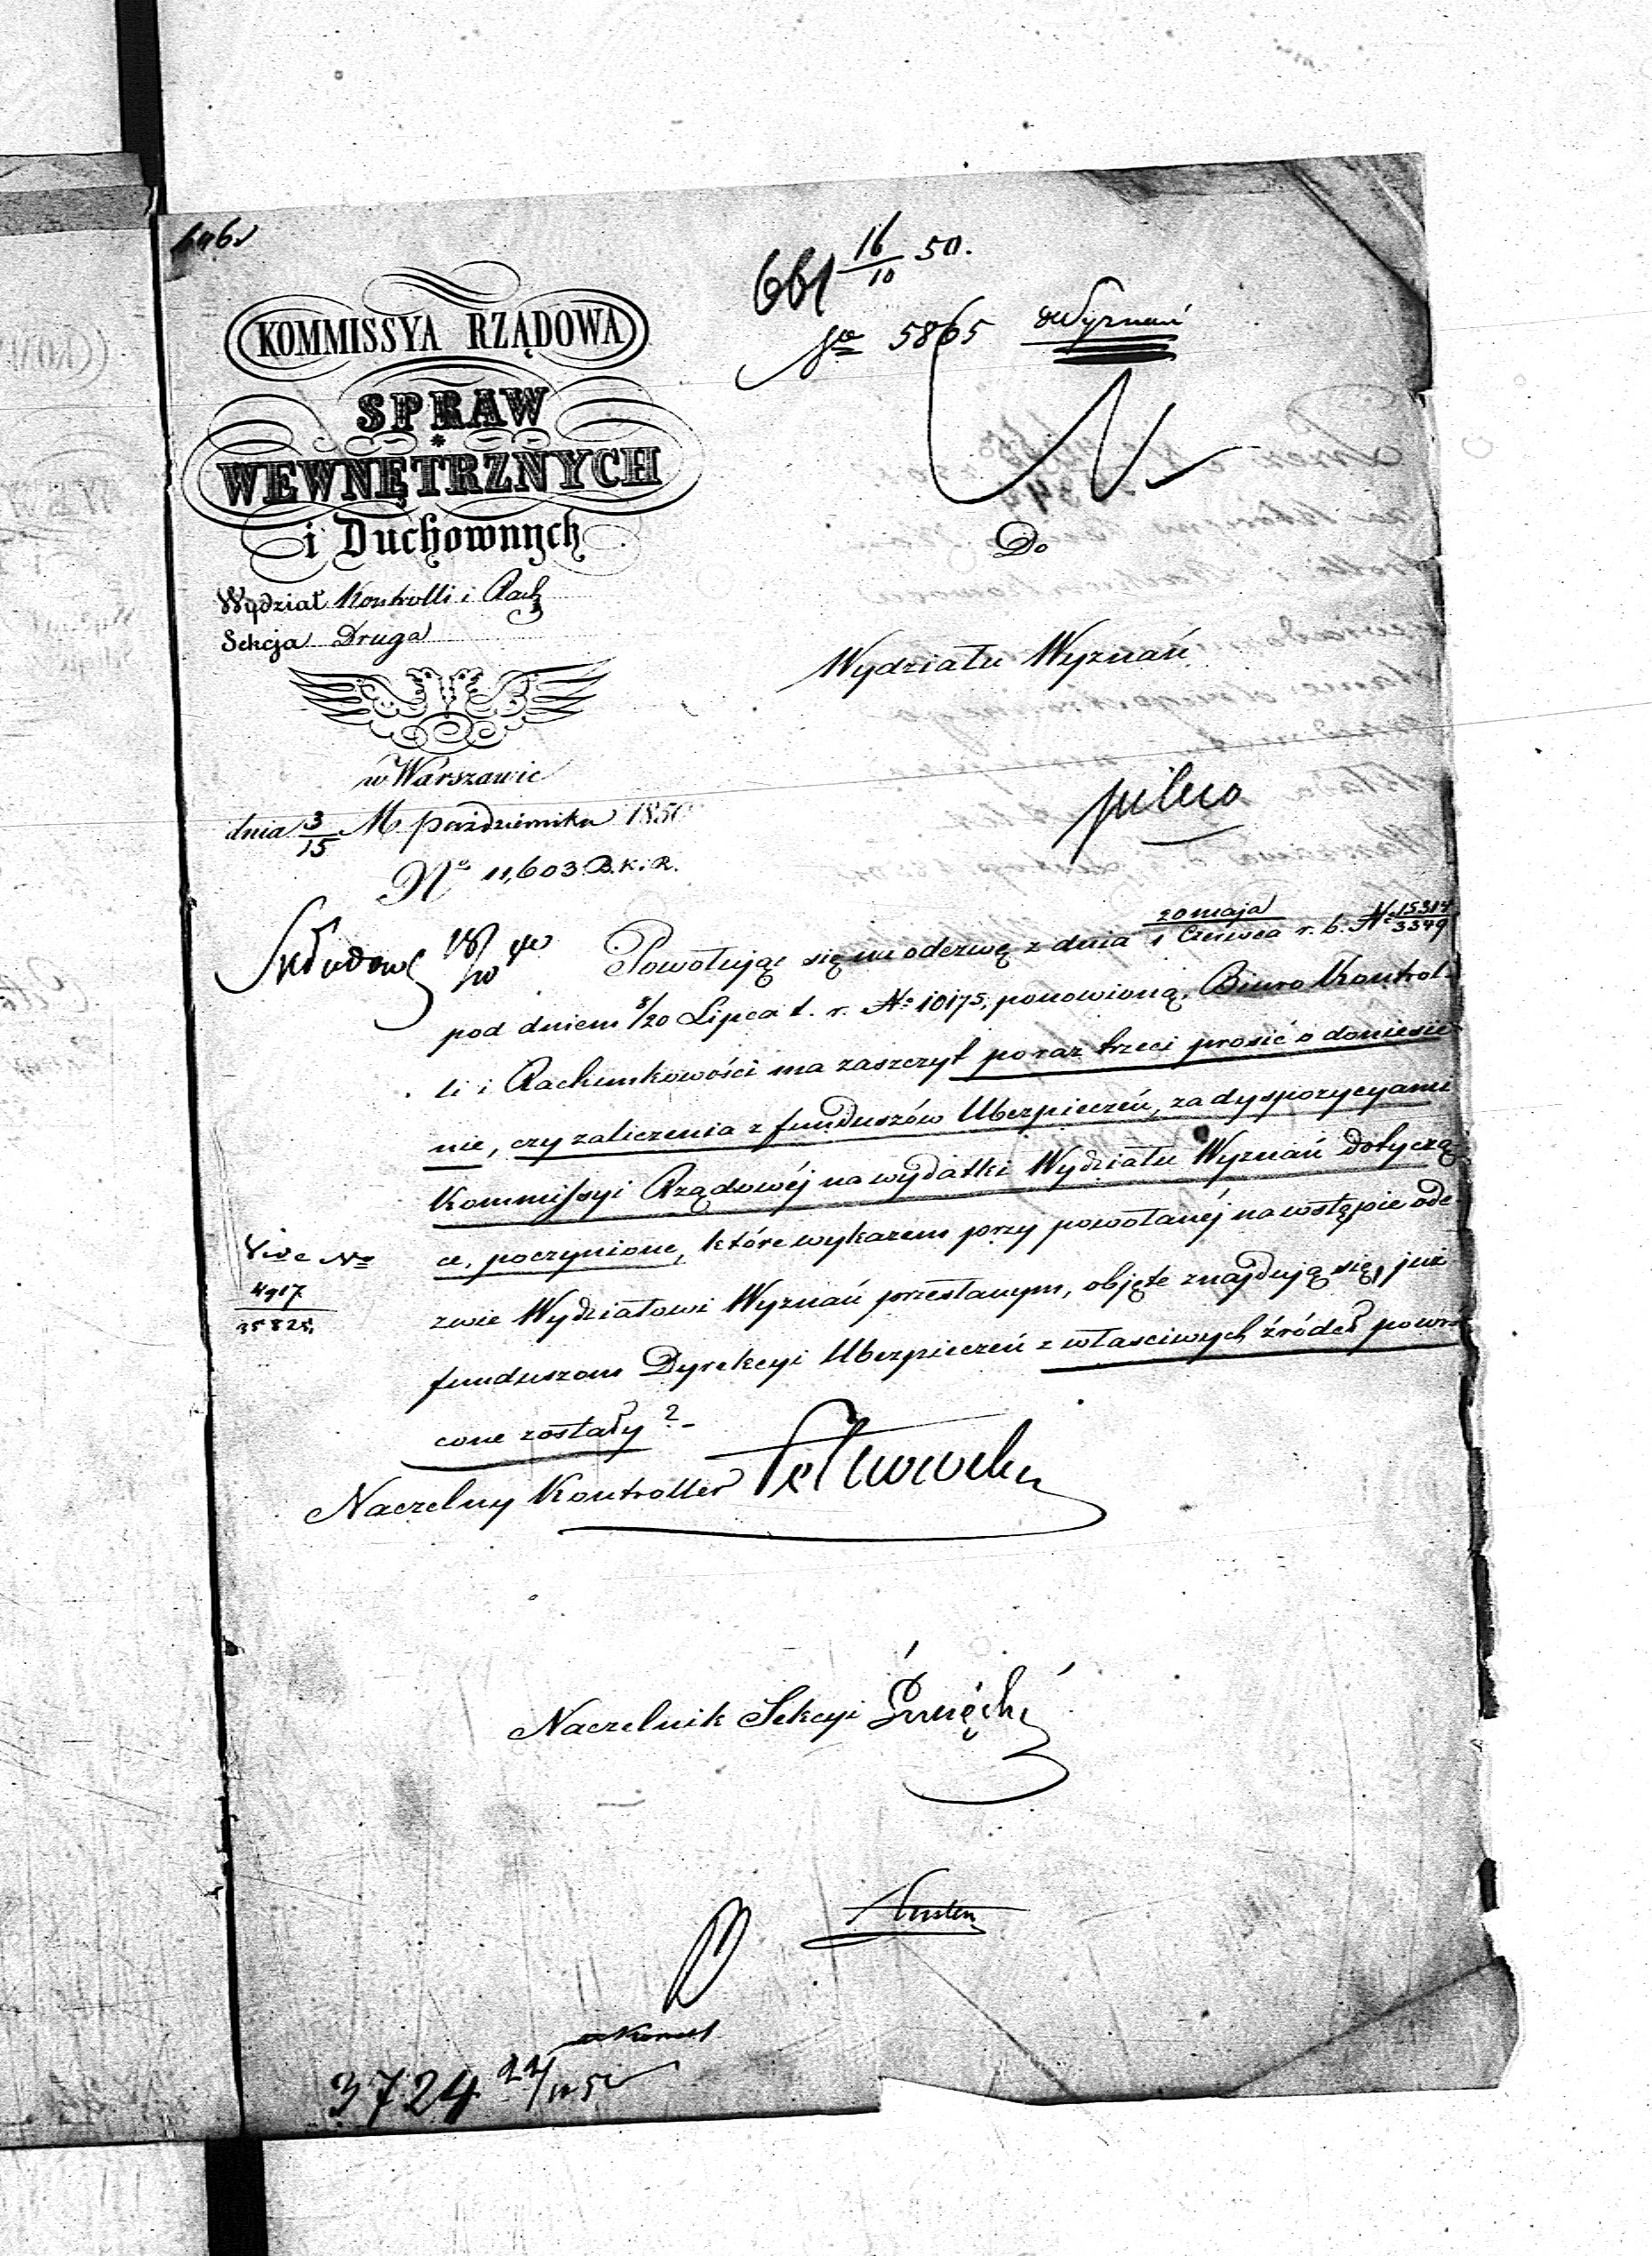 661 16/10 50.
5865 Wyznań
KOMMISSYA RZĄDOWA
SPRAW
WEWNĘTRZNYCH
i Duchownych
Wydział Kontrolli i Rach
Sekcja Druga
w Warszawie
dnia 3/15 M października 1850
No 11,603. B.K.i.R.
Do
Wydziału Wyznań
pilno
Powołując się na odezwę z dnia 20 maja/1 Czerwca r. b. No 15314/3549
pod dniem 8/20 Lipca t. r. No 10175, ponowioną, Biuro Kontrol-
li i Rachunkowości ma zaszczyt poraz trzeci prosić o doniesie-
nie, czy zaliczenia z funduszów Ubezpieczeń, za dyspozycyami
Kommissyi Rządowéj na wydatki Wydziału Wyznań dotyczą-
ce, poczynione, które wykazem przy powołanéj na wstępie ode-
zwie Wydziałowi Wyznań przesłanym, objęte znajdują się, już
funduszom Dyrekcyi Ubezpieczeń z właściwych źródeł powró-
cone zostały?
Vide No
4917
35825.
Naczelny Kontroller
Naczelnik Sekcyi
3724